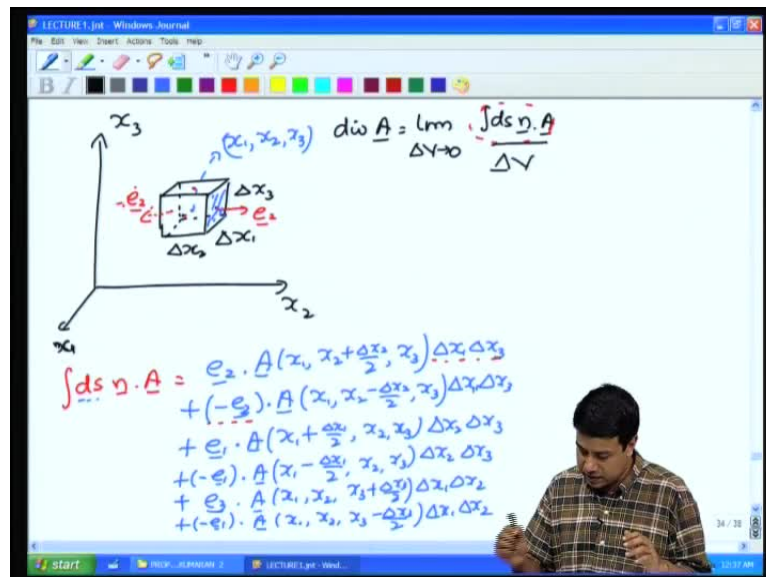 LECTURE1.jnt - Windows Journal
File Edit View Insert Actions Tools Help
B I
x₃
(x₁, x₂, x₃)
div A = lim ∫ds n.A
ΔV→0 ΔV
-e₂
Δx₃
e₂
Δx₁
Δx₂
x₂
x₁
∫ds n.A = e₂.A(x₁, x₂+Δx₂/2, x₃)Δx₁Δx₃
+(-e₂).A(x₁, x₂-Δx₂/2, x₃)Δx₁Δx₃
+ e₁.A(x₁+Δx₁/2, x₂,x₃)Δx₂Δx₃
+(-e₁).A(x₁-Δx₁/2, x₂,x₃)Δx₂Δx₃
+ e₃.A(x₁,x₂, x₃+Δx₃/2)Δx₁Δx₂
+(-e₁).A(x₁, x₂, x₃-Δx₃/2)Δx₁Δx₂
34 / 38
start
PROF...KUMARAN 2
LECTURE1.jnt - Wind...
12:37 AM